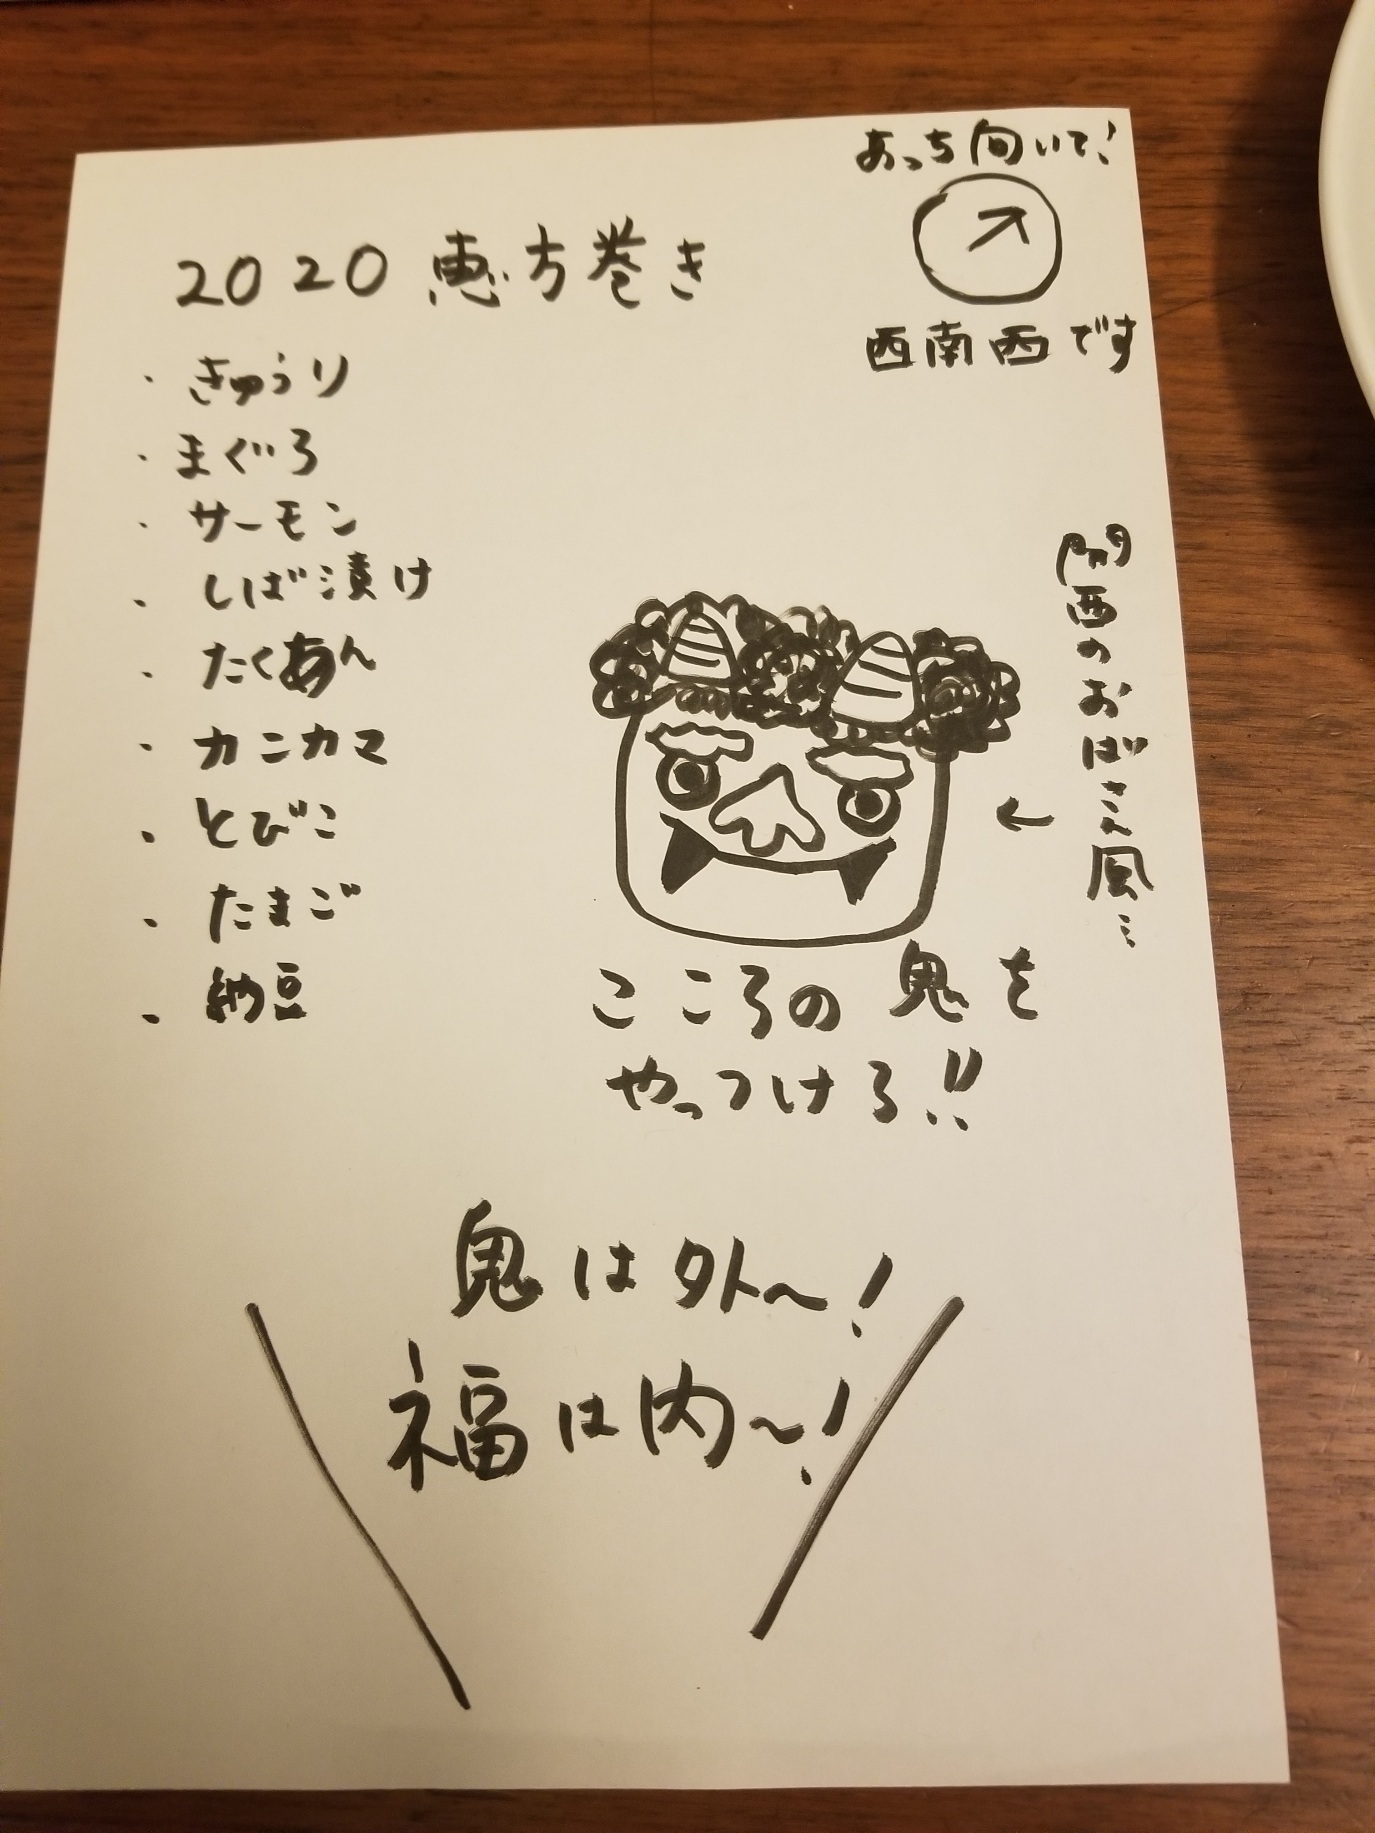 あっち向いて!
西南西です
2020 恵方巻き
・きゅうり
・まぐろ
・サーモン
・しば漬け
・たくあん
・カニカマ
・とびこ
・たまご
・納豆
関西のおばさん風…
←
こころの鬼を
やっつけろ!!
鬼は外〜!
福は内〜!